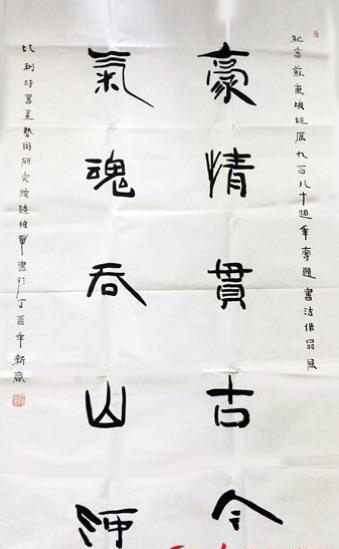 紀念蘇東坡誕辰九百八十週年專題書法作品展
豪情貫古今
氣魂吞山河
比利時書畫藝術研究院陸惟華書於丁酉年新歲